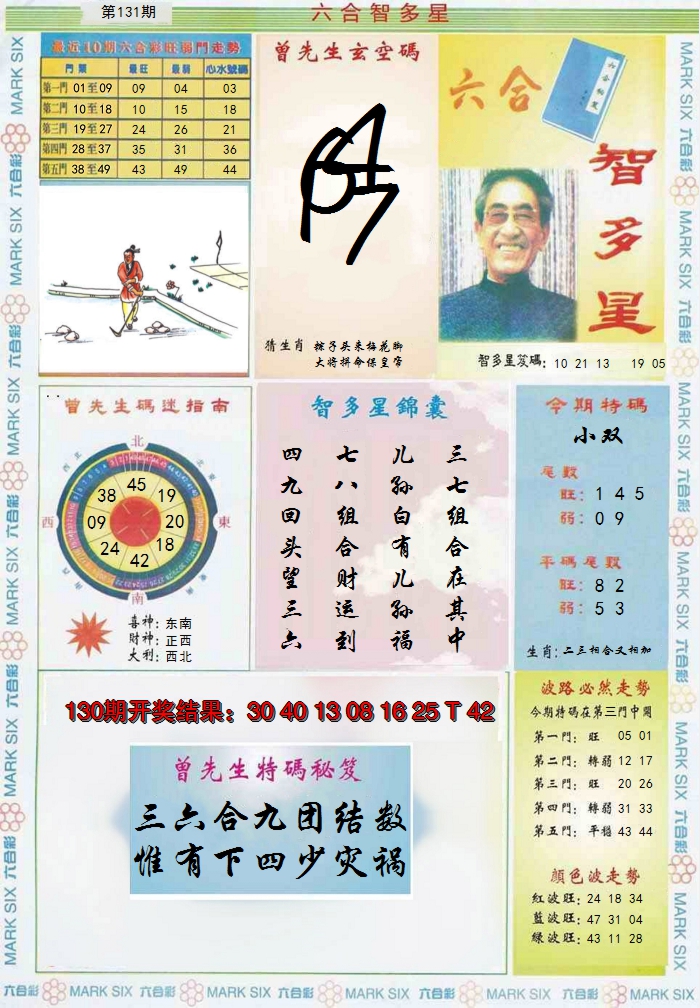 第131期
六合智多星
最近10期六合彩旺弱門走勢
門類 最旺 最弱 心水號碼
第一門 01至09 09 04 03
第二門 10至18 10 15 18
第三門 19至27 24 26 21
第四門 28至37 35 31 36
第五門 38至49 43 49 44
曾先生玄空碼
猜生肖 辣子头来梅花脚
大将拼命保皇帝
六合
智多星
智多星笈碼: 10 21 13 19 05
曾先生碼迷指南
北
西北
東北
45
38 19
西 09 20 東
24 18
42
西南
東南
南
喜神: 东南
财神: 正西
大利: 西北
智多星錦囊
三七组合在其中
儿孙白有儿孙福
七八组合财运到
四九回头望三六
今期特碼
小双
尾數
旺: 1 4 5
弱: 0 9
平碼尾數
旺: 8 2
弱: 5 3
生肖: 二三相合又相加
130期开奖结果: 30 40 13 08 16 25 T 42
曾先生特碼秘笈
三六合九团结数
惟有下四少灾祸
波路必然走勢
今期特碼在第三門中開
第一門: 旺 05 01
第二門: 轉弱 12 17
第三門: 旺 20 26
第四門: 轉弱 31 33
第五門: 平穩 43 44
顏色波走勢
紅波旺: 24 18 34
藍波旺: 47 31 04
綠波旺: 43 11 28
六合彩 MARK SIX 六合彩 MARK SIX 六合彩 MARK SIX 六合彩 MARK SIX 六合彩 MARK SIX